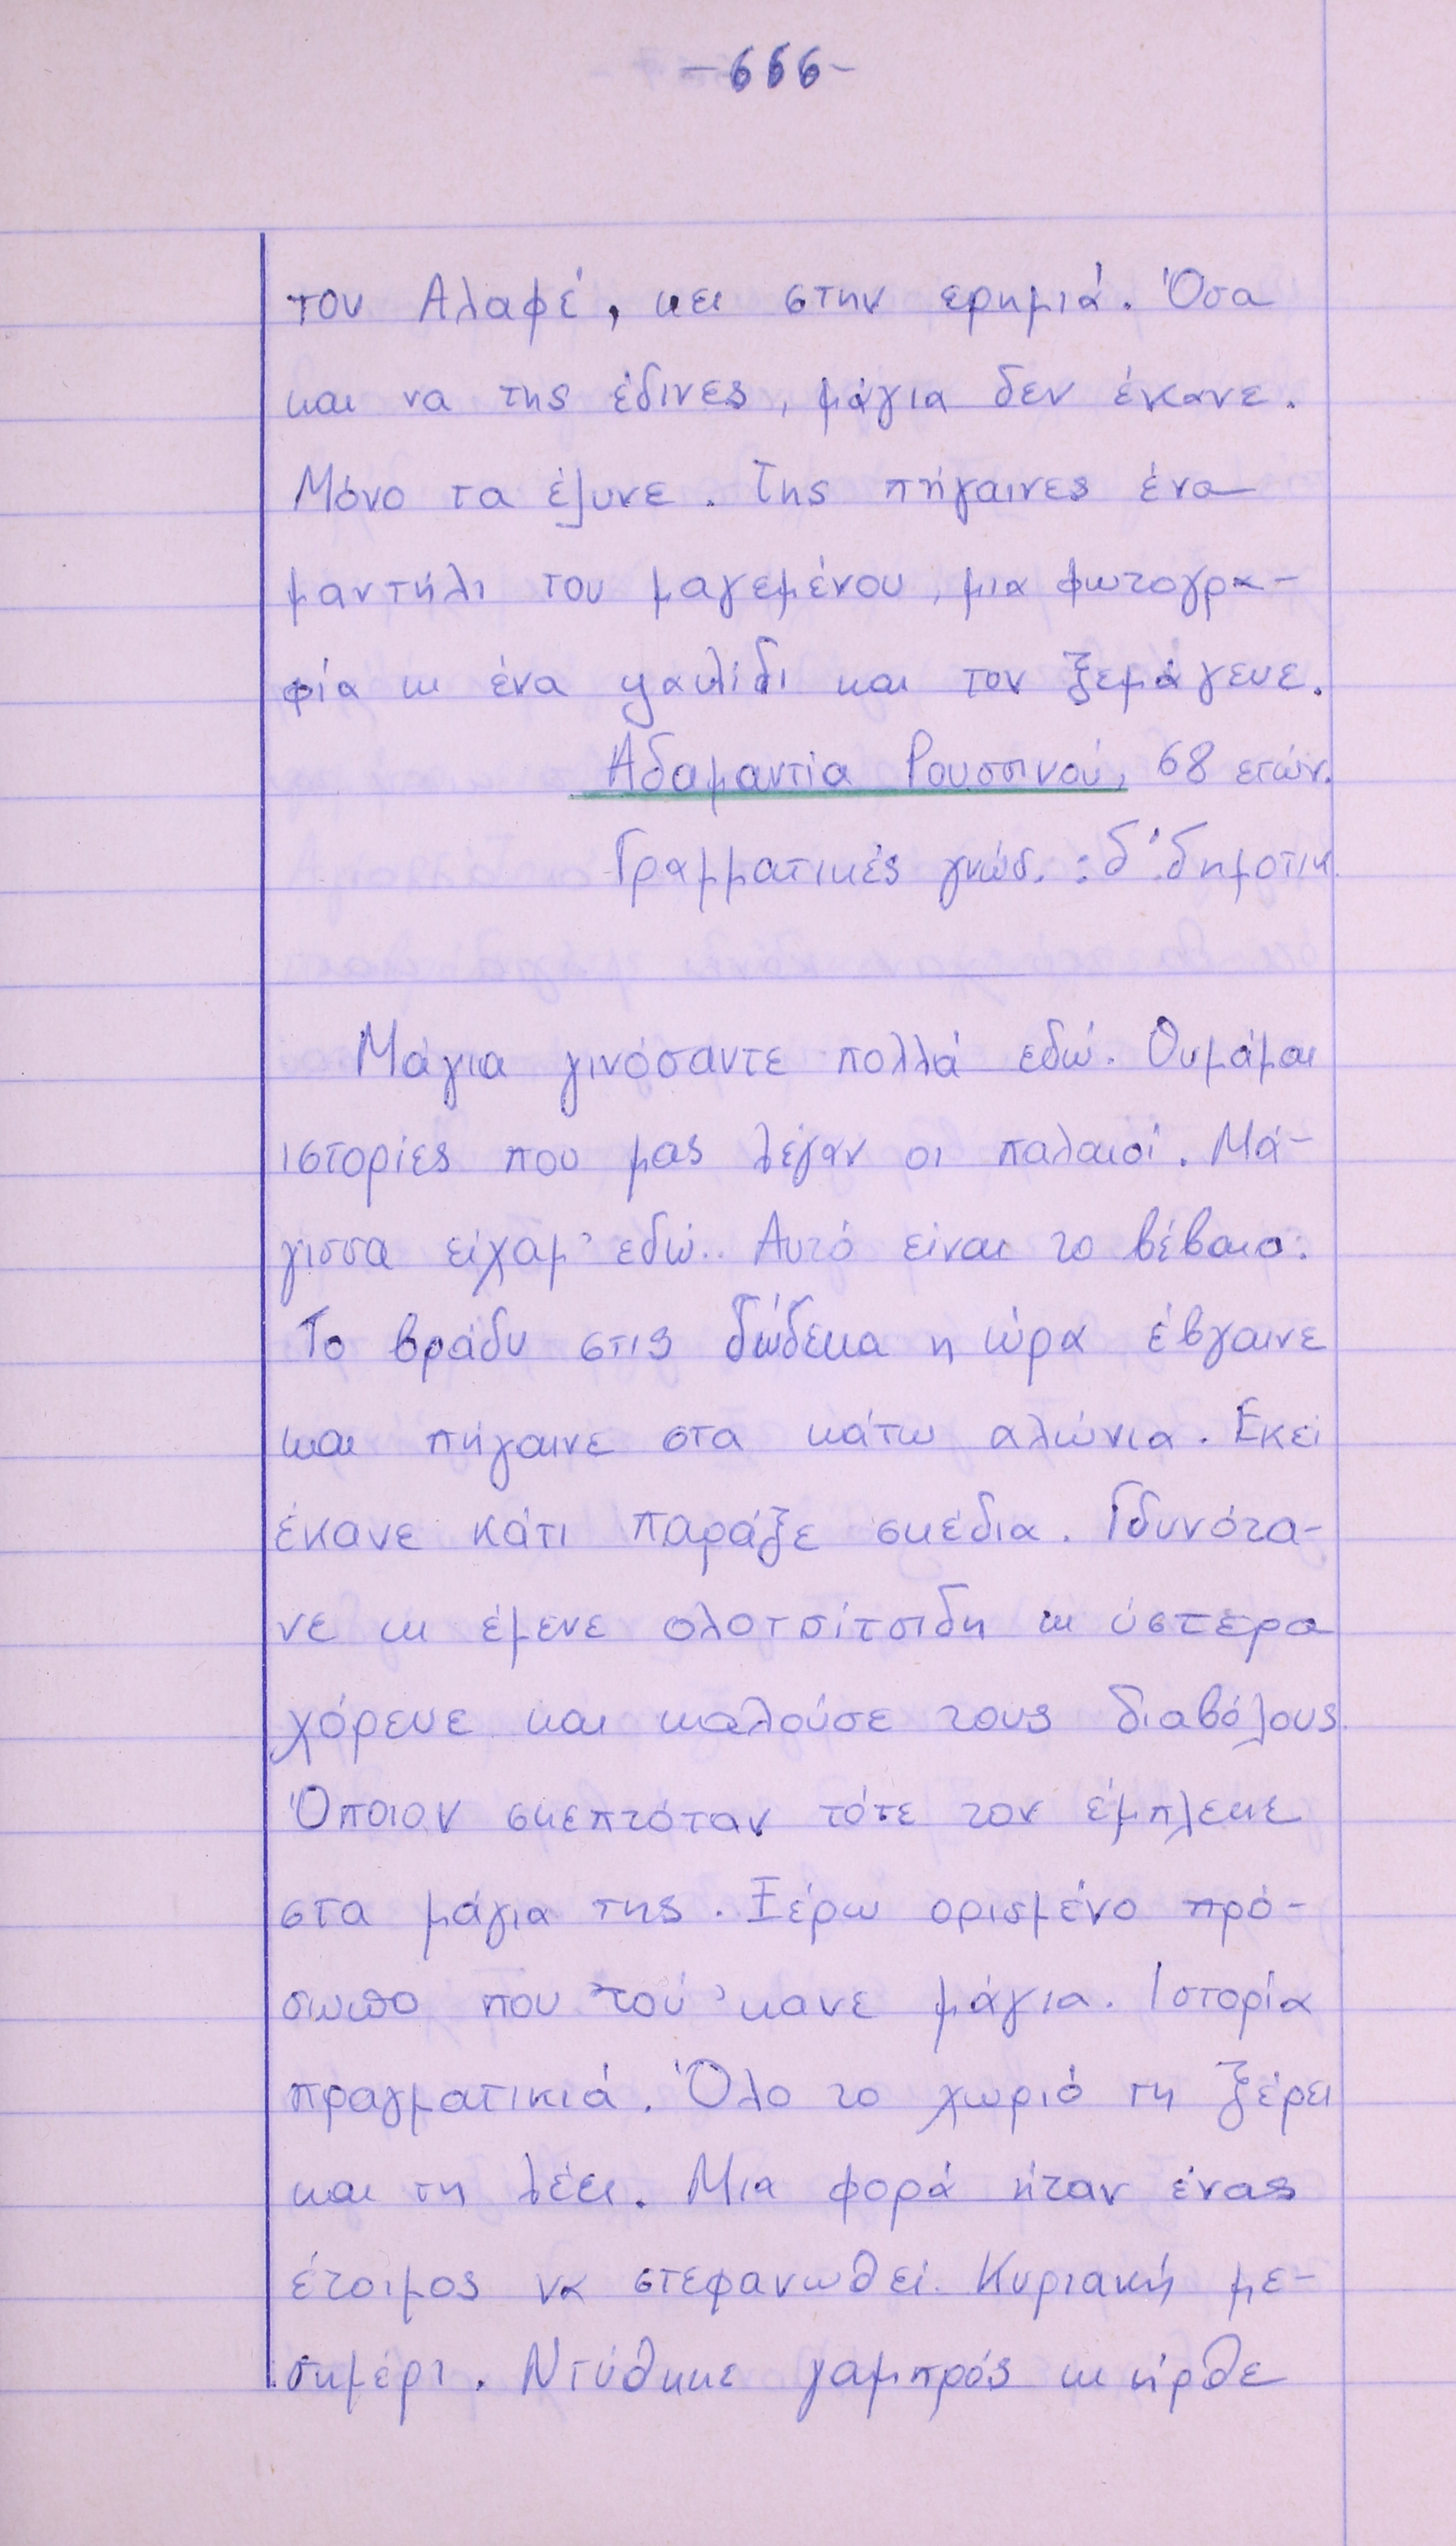 -666-
τον Αλαφέ, κει στην ερημιά. Όσα
και να της έδινες, μάγια δεν έκανε.
Μόνο τα έλυνε. Της πήγαινες ένα
μαντήλι του μαγεμένου, μια φωτογρα-
φία κι ένα ψαλίδι και τον ξεμάγευε.
Αδαμαντία Ρουσσινού, 68 ετών.
Γραμματικές γνώσ. : δ΄ δημοτικ.
Μάγια γινόσαντε πολλά εδώ. Θυμάμαι
ιστορίες που μας λέγαν οι παλαιοί. Μά-
γισσα είχαμ' εδώ. Αυτό είναι το βέβαιο.
Το βράδυ στις δώδεκα η ώρα έβγαινε
και πήγαινε στα κάτω αλώνια. Εκεί
έκανε κάτι παράξε σκέδια. Γδυνότα-
νε κι έμενε ολοτσίτσιδη κι ύστερα
χόρευε και καλούσε τους διαβόλους.
Όποιον σκεπτόταν τότε τον έμπλεκε
στα μάγια της. Ξέρω ορισμένο πρό-
σωπο που τού 'κανε μάγια. Ιστορία
πραγματικιά. Όλο το χωριό τη ξέρει
και τη λέει. Μια φορά ήταν ένας
έτοιμος να στεφανωθεί Κυριακή με-
σημέρι. Ντύθηκε γαμπρός κι ήρθε